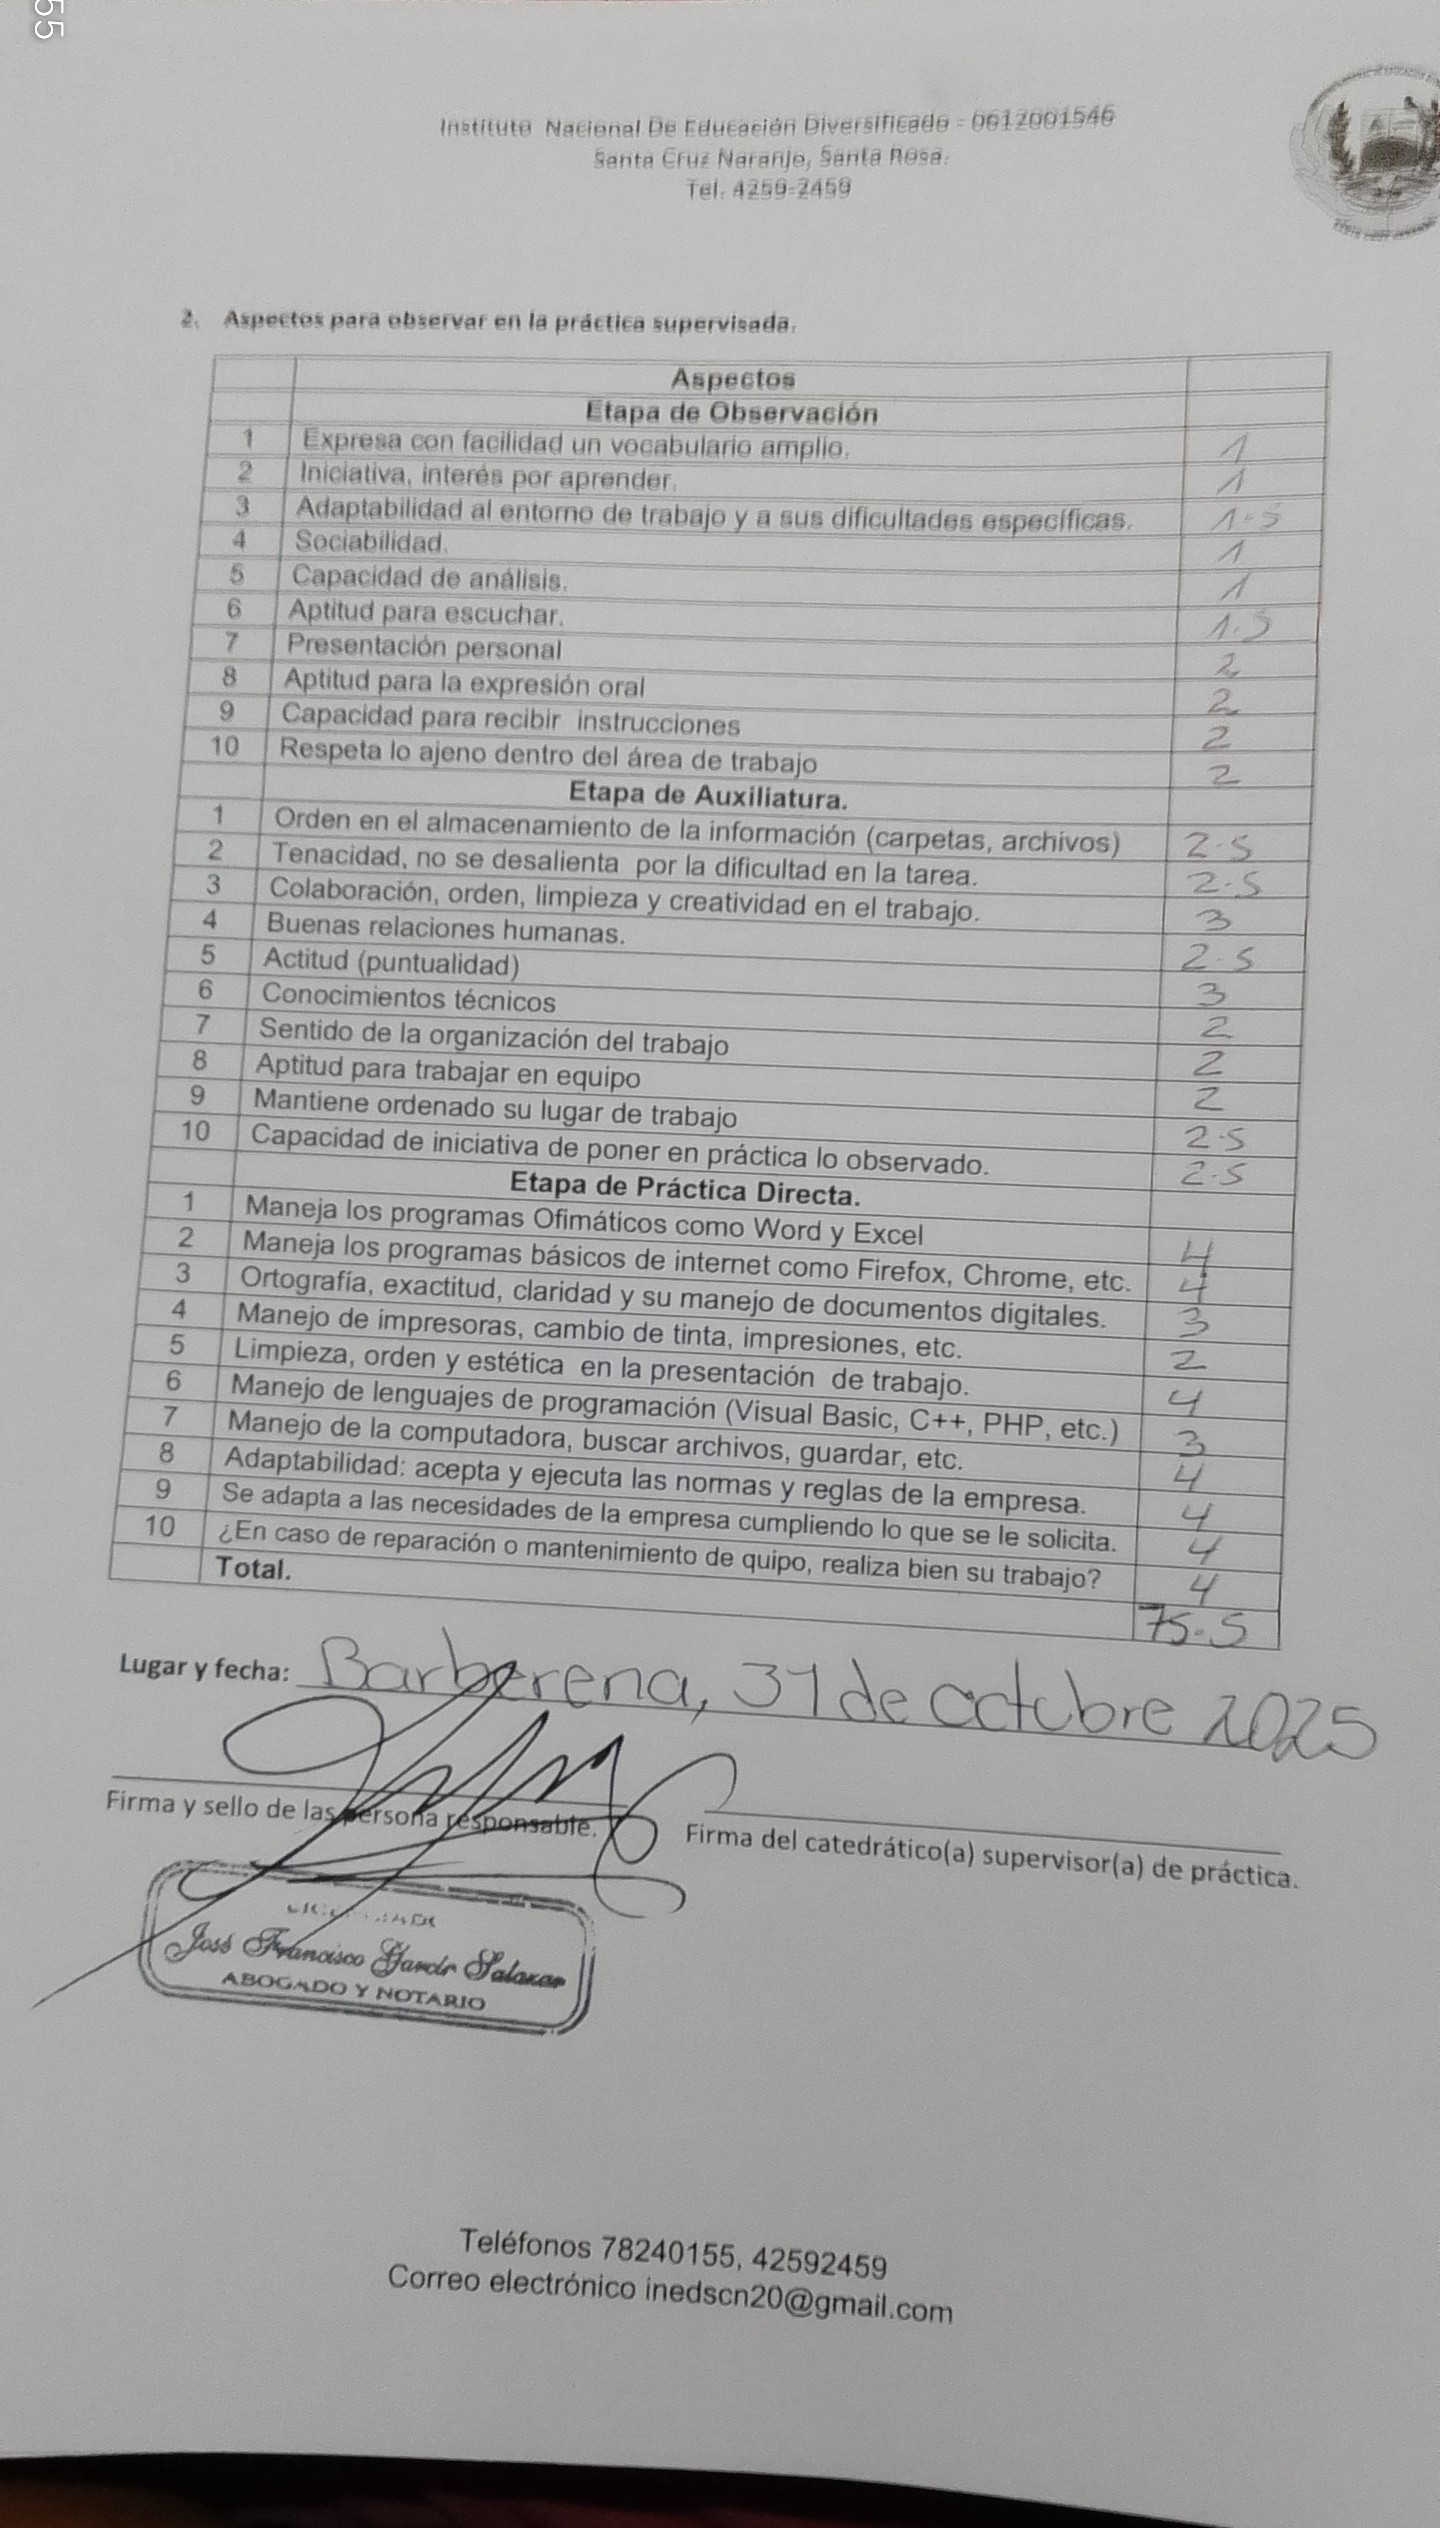 55
Instituto Nacional De Educación Diversificado - 0612001546
Santa Cruz Naranjo, Santa Rosa.
Tel. 4259-2459
2. Aspectos para observar en la práctica supervisada.
Aspectos
Etapa de Observación
1 Expresa con facilidad un vocabulario amplio. 1
2 Iniciativa, interés por aprender. 1
3 Adaptabilidad al entorno de trabajo y a sus dificultades específicas. 1.5
4 Sociabilidad. 1
5 Capacidad de análisis. 1
6 Aptitud para escuchar. 1.5
7 Presentación personal 2
8 Aptitud para la expresión oral 2
9 Capacidad para recibir instrucciones 2
10 Respeta lo ajeno dentro del área de trabajo 2
Etapa de Auxiliatura.
1 Orden en el almacenamiento de la información (carpetas, archivos) 2.5
2 Tenacidad, no se desalienta por la dificultad en la tarea. 2.5
3 Colaboración, orden, limpieza y creatividad en el trabajo. 3
4 Buenas relaciones humanas. 2.5
5 Actitud (puntualidad) 3
6 Conocimientos técnicos 2
7 Sentido de la organización del trabajo 2
8 Aptitud para trabajar en equipo 2
9 Mantiene ordenado su lugar de trabajo 2.5
10 Capacidad de iniciativa de poner en práctica lo observado. 2.5
Etapa de Práctica Directa.
1 Maneja los programas Ofimáticos como Word y Excel 4
2 Maneja los programas básicos de internet como Firefox, Chrome, etc. 4
3 Ortografía, exactitud, claridad y su manejo de documentos digitales. 3
4 Manejo de impresoras, cambio de tinta, impresiones, etc. 2
5 Limpieza, orden y estética en la presentación de trabajo. 4
6 Manejo de lenguajes de programación (Visual Basic, C++, PHP, etc.) 3
7 Manejo de la computadora, buscar archivos, guardar, etc. 4
8 Adaptabilidad: acepta y ejecuta las normas y reglas de la empresa. 4
9 Se adapta a las necesidades de la empresa cumpliendo lo que se le solicita. 4
10 ¿En caso de reparación o mantenimiento de quipo, realiza bien su trabajo? 4
Total. 75.5
Lugar y fecha: Barberena, 31 de octubre 2025
Firma y sello de las persona responsable.
Firma del catedrático(a) supervisor(a) de práctica.
José Francisco Salazar
ABOGADO Y NOTARIO
Teléfonos 78240155, 42592459
Correo electrónico inedscn20@gmail.com